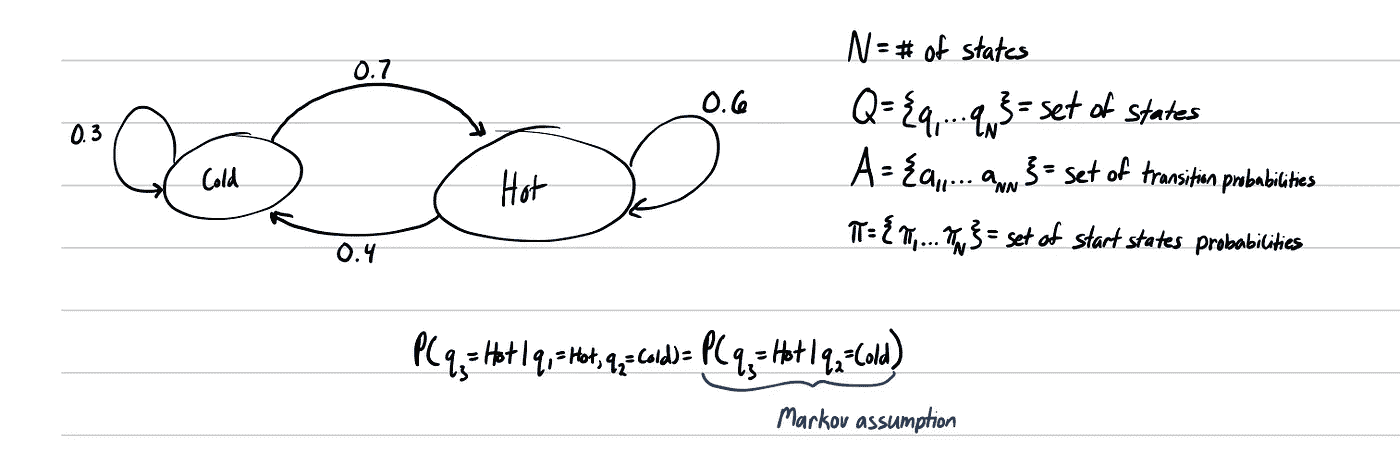 0.7
0.3
Cold
Hot
0.6
0.4
N = # of states
Q = {q₁...q_N} = set of states
A = {a₁₁... a_NN} = set of transition probabilities
π = {π₁...π_N} = set of start states probabilities
P(q₃=Hot|q₁=Hot, q₂=Cold) = P(q₃=Hot|q₂=Cold)
Markov assumption